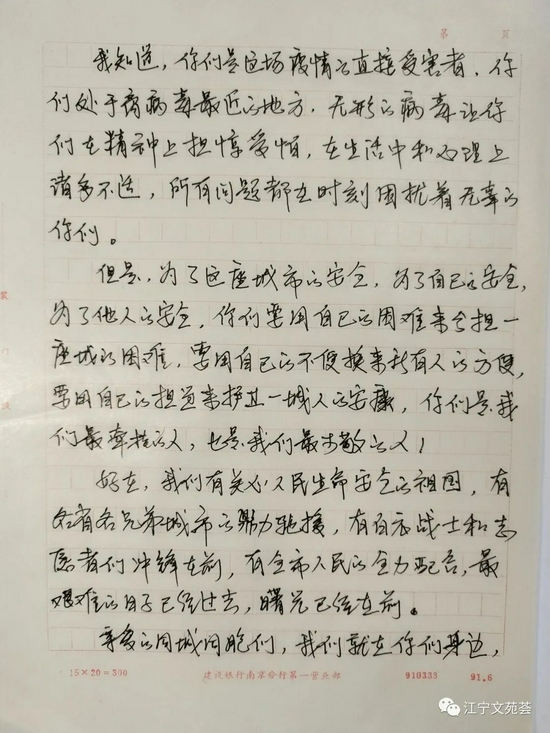 第 页
我知道，你们是这场疫情的直接受害者，你
们处于离病毒最近的地方，无形的病毒让你
们在精神上担惊受怕，在生活中和心理上
诸多不适，所有问题都在时刻困扰着无辜的
你们。
但是，为了这座城市的安全，为了自己的安全，
为了他人的安全，你们要用自己的困难来分担一
座城的困难，要用自己的不便换来所有人的方便，
要用自己的担道来护卫一城人的安康，你们是我
们最牵挂的人，也是我们最尊敬的人！
好在，我们有关心人民生命安全的祖国，有
各省各兄弟城市的鼎力驰援，有白衣战士和志
愿者们冲锋在前，有全市人民的全力配合，最
艰难的日子已经过去，曙光已经在前。
亲爱的同城同胞们，我们就在你们身边，
15×20=300 建设银行南京分行第一营业部 910333 91.6
江宁文苑荟